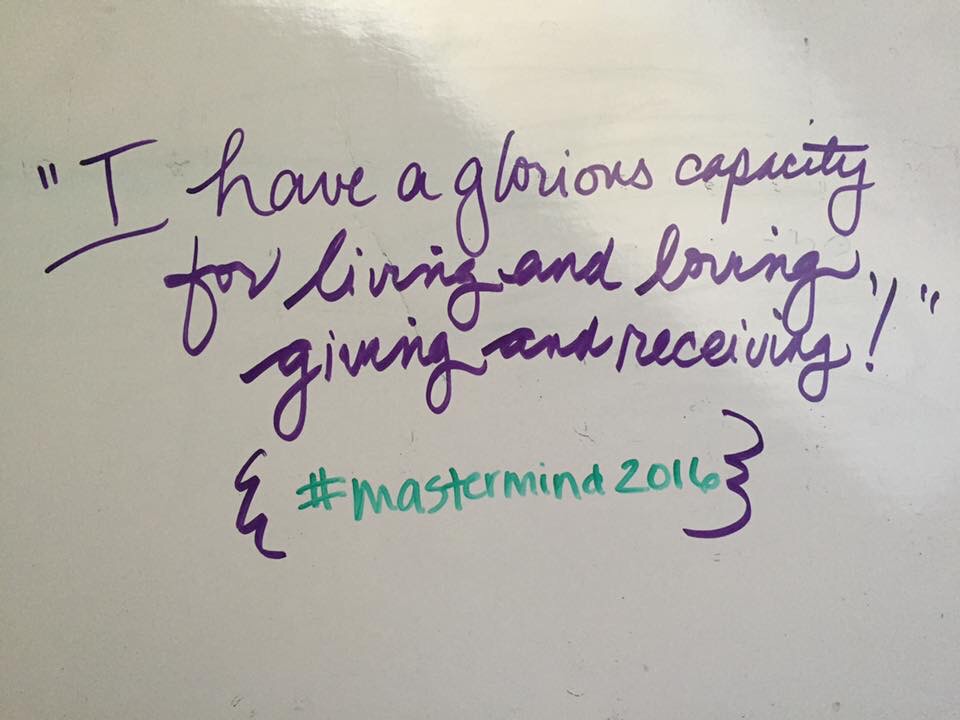 "I have a glorious capacity
for living and loving,
giving and receiving!"
{ #mastermind2016 }